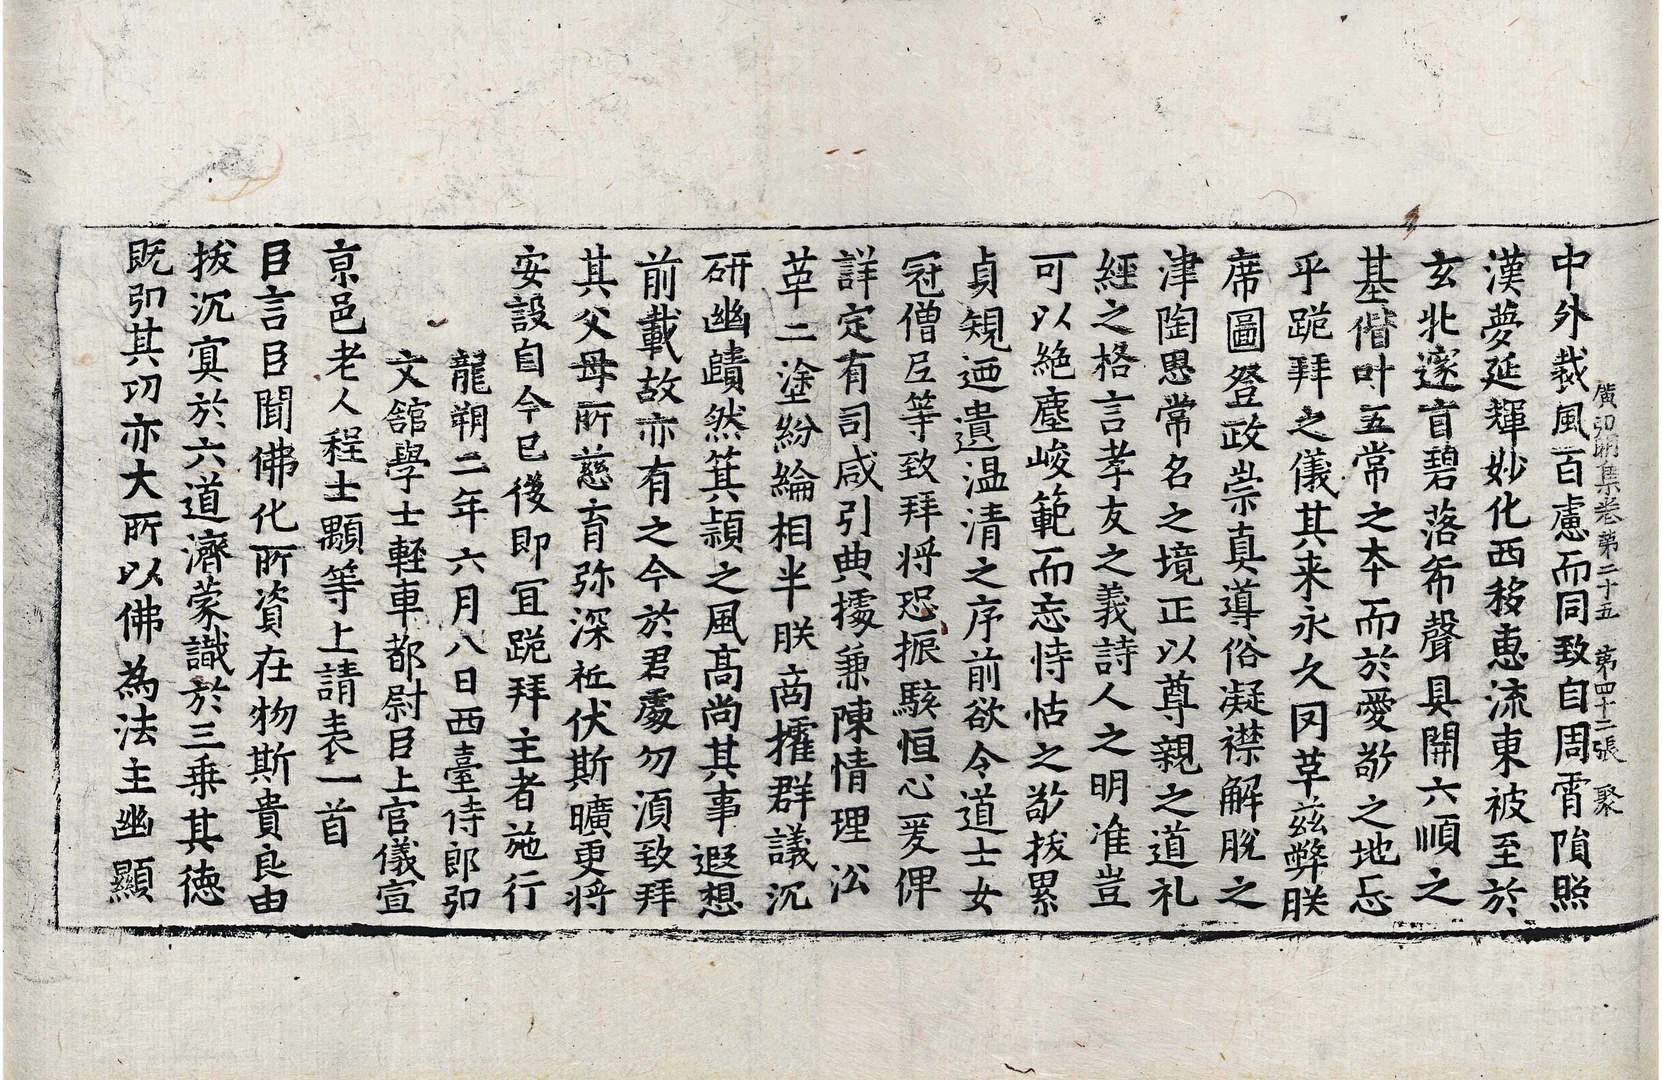 廣弘明集卷第二十五 第四十二張 聚
中外裁風百慮而同致自周霄隕照
漢夢延輝妙化西移恵流東被至於
玄牝邃旨碧落希聲具開六順之
基偕叶五常之本而於愛敬之地忘
乎跪拜之儀其来永久罔草兹弊朕
席圖登政崇真導俗凝襟解脫之
津陶思常名之境正以尊親之道礼
經之格言孝友之義詩人之明准豈
可以絶塵峻範而忘恃怙之敬拔累
貞規迺遺温清之序前欲令道士女
冠僧尼等致拜将恐振駭恒心爰俾
詳定有司咸引典據兼陳情理沿
革二塗紛綸相半朕商搉群議沉
研幽賾然箕潁之風高尚其事遐想
前載故亦有之今於君處勿湏致拜
其父母所慈育弥深祗伏斯曠更将
安設自今已後即冝跪拜主者施行
龍朔二年六月八日西臺侍郎弘
文舘學士軽車都尉臣上官儀宣
京邑老人程士顒等上請表一首
臣言臣聞佛化所資在物斯貴良由
拔沉冥於六道濟蒙識於三乗其徳
既弘其功亦大所以佛為法主幽顯